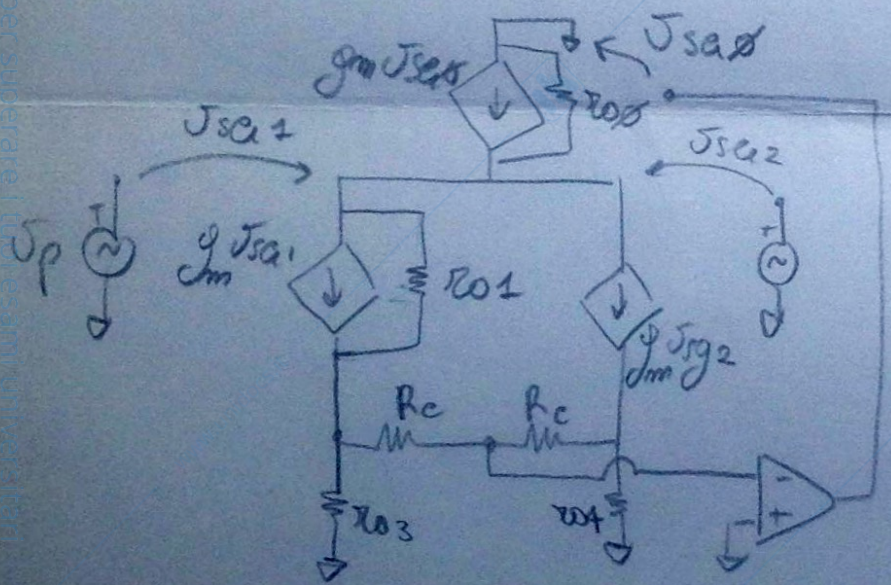 gmvsg0
vsg0
ro0
vsg1
vsg2
vp
+
gmvsg1
ro1
+
gmvsg2
Rc
Rc
ro3
ro4
-
+